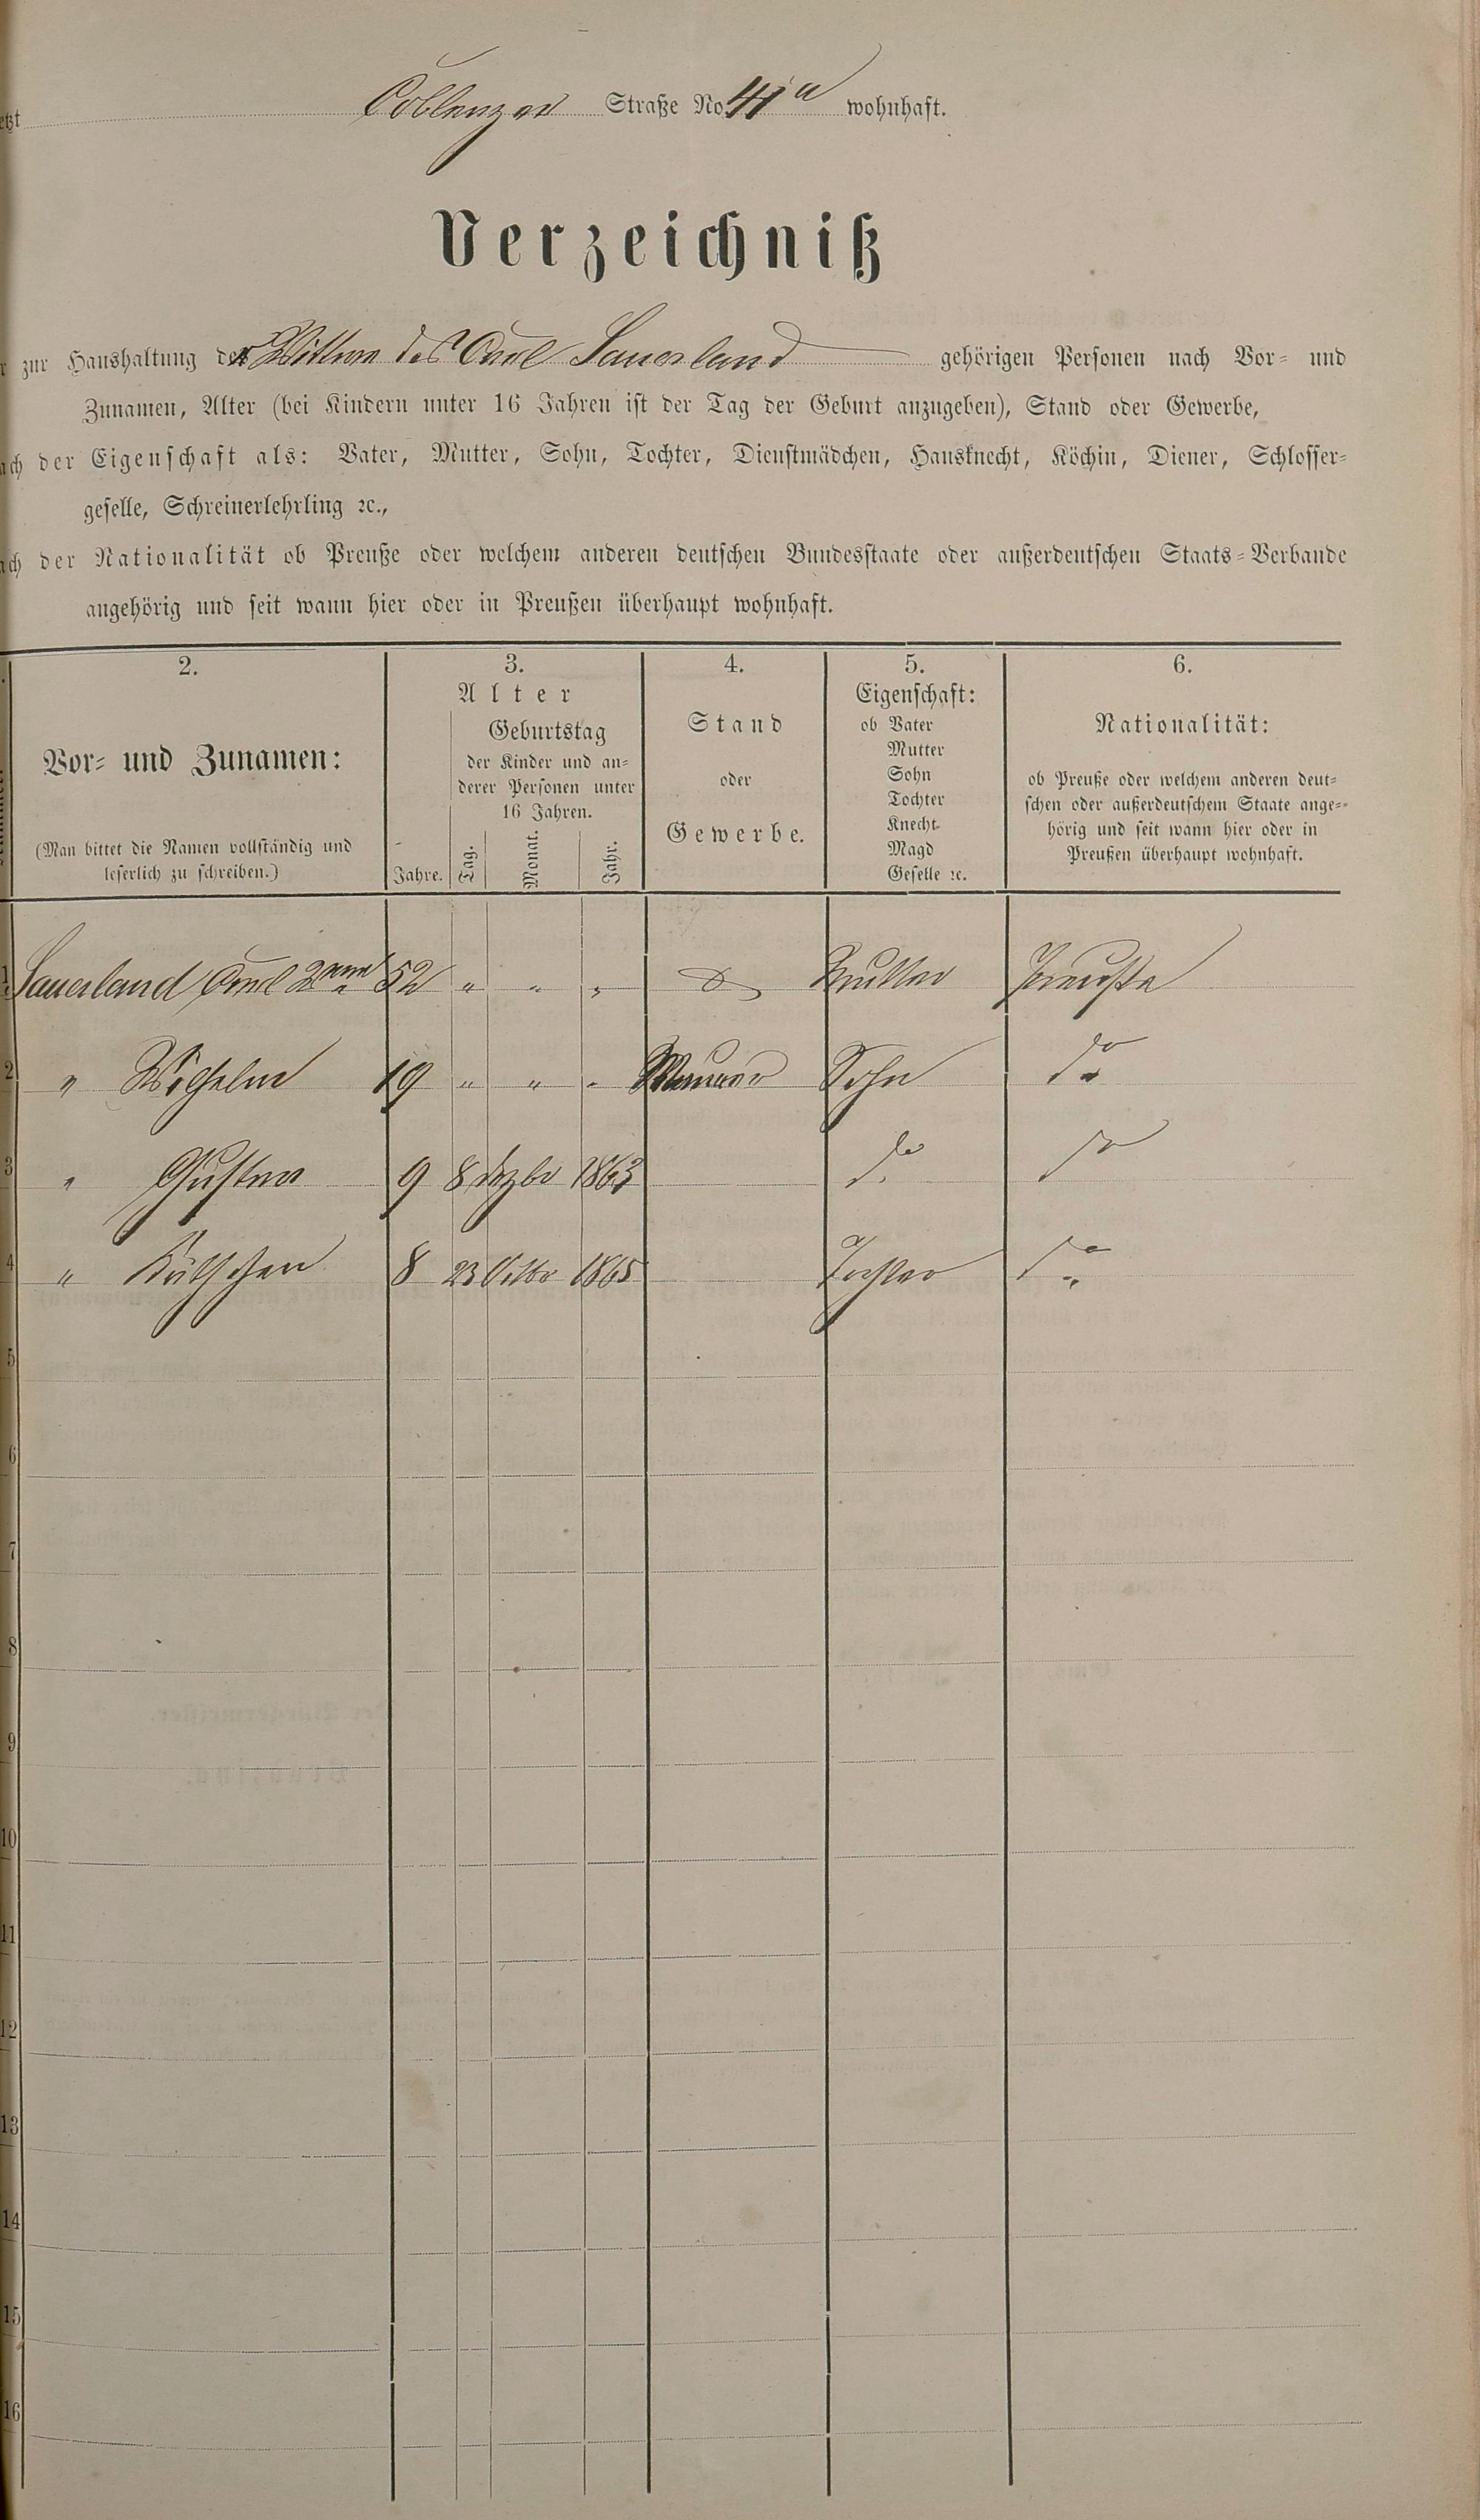 etzt Coblenzer Straße No. 41a wohnhaft.
Verzeichniß
r zur Haushaltung der Wittwe des Carl Sauerland gehörigen Personen nach Vor- und
Zunamen, Alter (bei Kindern unter 16 Jahren ist der Tag der Geburt anzugeben), Stand oder Gewerbe,
ach der Eigenschaft als: Vater, Mutter, Sohn, Tochter, Dienstmädchen, Hausknecht, Köchin, Diener, Schlosser-
geselle, Schreinerlehrling ꝛc.,
ach der Nationalität ob Preuße oder welchem anderen deutschen Bundesstaate oder außerdeutschen Staats-Verbande
angehörig und seit wann hier oder in Preußen überhaupt wohnhaft.
2.
Vor- und Zunamen:
(Man bittet die Namen vollständig und
leserlich zu schreiben.)
3.
Alter
Geburtstag
der Kinder und an-
derer Personen unter
16 Jahren.
Jahre. Tag. Monat. Jahr.
4.
Stand
oder
Gewerbe.
5.
Eigenschaft:
ob Vater
Mutter
Sohn
Tochter
Knecht
Magd
Geselle ꝛc.
6.
Nationalität:
ob Preuße oder welchem anderen deut-
schen oder außerdeutschem Staate ange-
hörig und seit wann hier oder in
Preußen überhaupt wohnhaft.
1 Sauerland Carl 52 " " " Mutter Preuße
2 " Wilhelm 19 " " " Maurer Sohn do
3 " Gustav 9 8 Dezbr 1863 do do
4 " 8 23 Octbr 1865 Tochter do
5
6
7
8
9
10
11
12
13
14
15
16